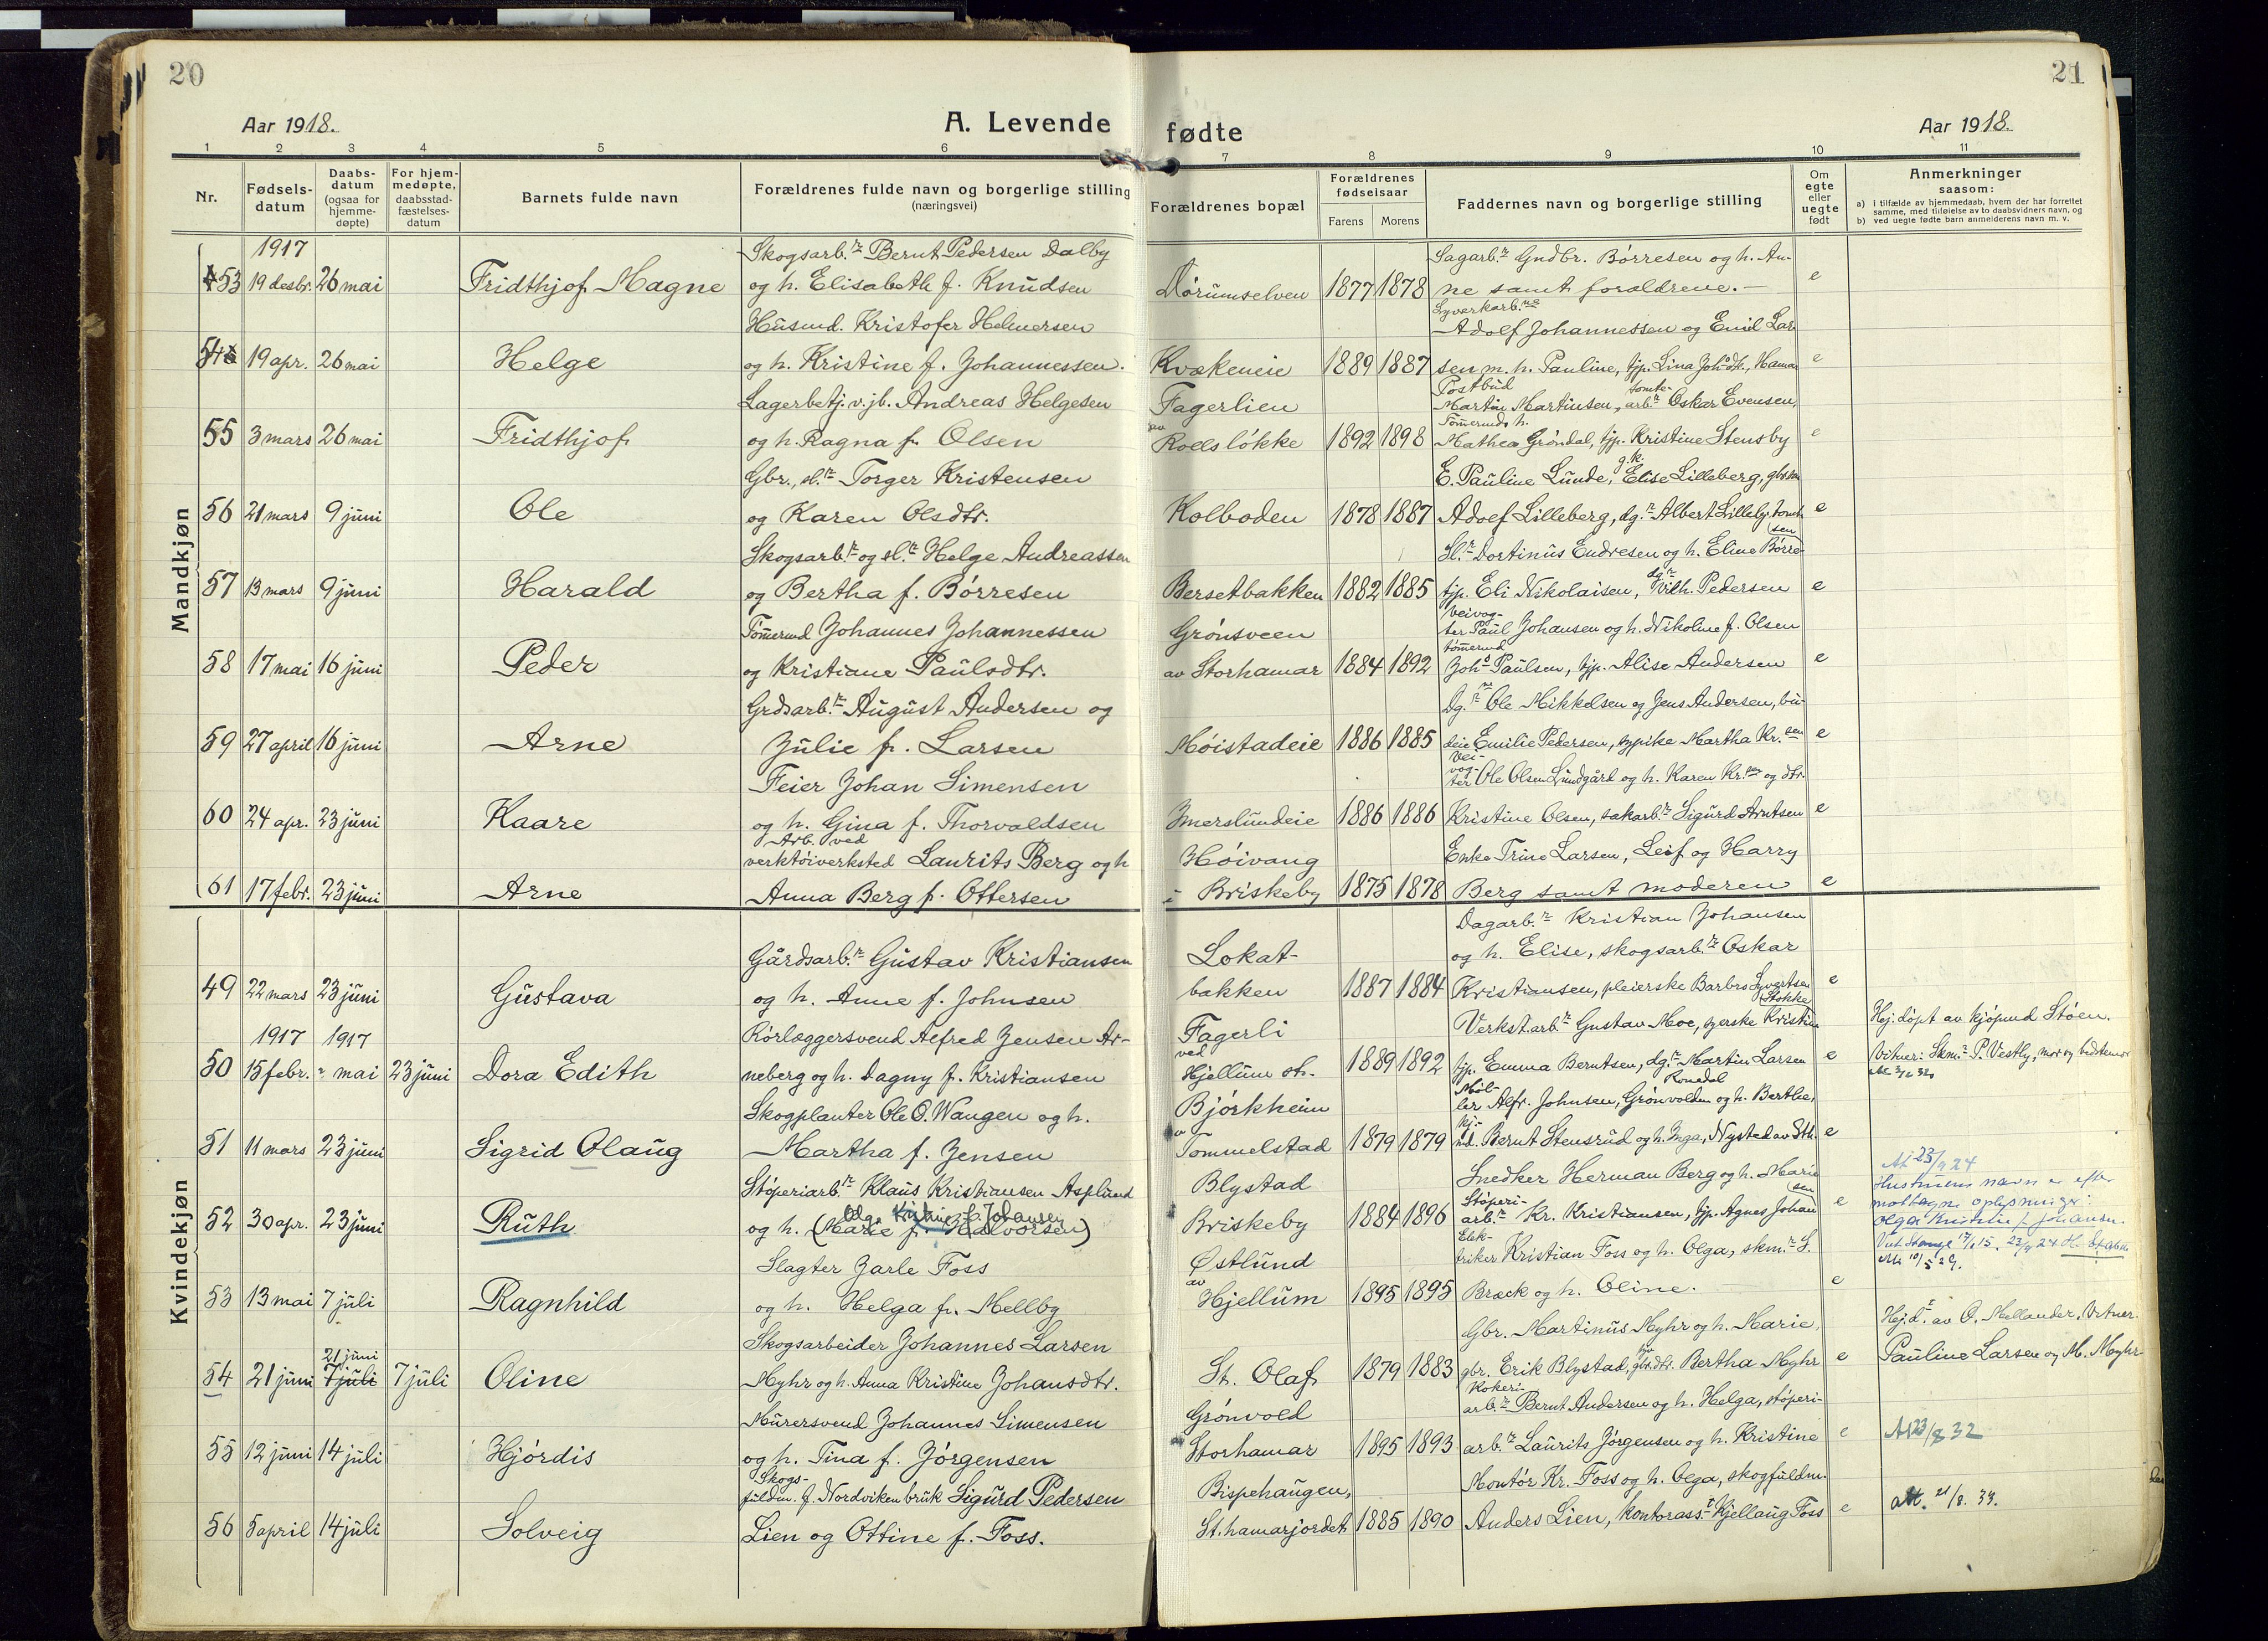 20
21
Aar 1918.
A. Levende
fødte
Aar 1918.
1 2 3 4 5 6 7 8 9 10 11
Nr.
Fødsels-
datum
Daabs-
datum
(ogsaa for
hjemme-
døpte)
For hjem-
medøpte,
daabsstad-
fæstelses-
datum
Barnets fulde navn
Forældrenes fulde navn og borgerlige stilling
(næringsvei)
Forældrenes bopæl
Forældrenes
fødselsaar
Farens Morens
Faddernes navn og borgerlige stilling
Om
egte
eller
uegte
født
Anmerkninger
saasom:
a) i tilfælde av hjemmedaab, hvem der har forrettet
samme, med tilføielse av to daabsvidners navn, og
b) ved uegte fødte barn anmelderens navn m. v.
Mandkjøn
1917 Skogsarb.r Bernt Pedersen Dalby Sagarb.r Gudbr. Børresen og h. An-
53 19 desbr. 26 mai Fridthjof Magne og h. Elisabeth f. Knudsen Dørumselven 1877 1878 ne samt forældrene. e
Husmd. Kristofer Helmersen Adolf Johannessen og Emil Lar
54 19 apr. 26 mai Helge og h. Kristine f. Johannessen. Kvækeneie 1889 1887 sen m. h. Pauline, tjp. Lina Joh.sdtr., Hamar e
Lagerbetj. v. jb. Andreas Helgesen Fagerlien Postbud Martin Martinsen, tomtearb.r Oskar Evensen,
55 3 mars 26 mai Fridthjof og h. Ragna f. Olsen av Roesløkke 1892 1898 Tømermds h. Mathea Grøndal, tjp. Kristine Stensby e
Gbr., sl.r Torger Kristensen E. Pauline Lunde, g.k. Elise Lilleberg, gbrsøn
56 21 mars 9 juni Ole og Karen Olsdtr. Kolboden 1878 1887 Adolf Lilleberg, dg.r Albert Lilleby. tomt e
Skogsarb.r og sl.r Helge Andreassen Sl.r Dortinus Endresen og h. Eline Børresen
57 13 mars 9 juni Harald og Bertha f. Børresen Bersetbakken 1882 1885 tjp. Eli Nikolaisen, dg.r Vilh. Pedersen e
Tømermd Johannes Johannessen Grønsveen veivogter Paul Johansen og h. Nikoline f. Olsen
58 17 mai 16 juni Peder og Kristiane Paulsdtr. av Storhamar 1884 1892 tømermd Joh.s Paulsen, tjp. Alise Andersen e
Grdsarb.r August Andersen og Dg.rne Ole Mikkelsen og Jens Andersen, bu-
59 27 april 16 juni Arne Julie f. Larsen Møistadeie 1886 1885 deie Emilie Pedersen, sypike Martha Kr.sen e
Feier Johan Simensen Veivogter Ole Olsen Lundgård og h. Karen Kr.sen og dtr.
60 24 apr. 23 juni Kaare og h. Gina f. Thorvaldsen Imerslundeie 1886 1886 Kristine Olsen, sakarb.r Sigurd Arntsen e
Arb. ved
verktøiverksted Laurits Berg og h Høivang Enke Trine Larsen, Leif og Harry
61 17 febr. 23 juni Arne Anna Berg f. Ottersen i Briskeby 1875 1878 Berg samt moderen e
Kvindekjøn
Dagarb.r Kristian Johansen
Gårdsarb.r Gustav Kristiansen Lokat- og h. Elise, skogsarb.r Oskar
49 22 mars 23 juni Gustava og h. Anne f. Johnsen bakken 1887 1884 Kristiansen, pleierske Barbro Syvertsen e
1917 1917 Rørlæggersvend Alfred Jensen Ar- Fagerli Verkst.arb.r Gustav Moe, syerske Kristine Stokke Hj. døpt av kjøpmd Støen.
50 15 febr. mai 23 juni Dora Edith neberg og h. Dagny f. Kristiansen ved Hjellum st. 1889 1892 tjp. Emma Berntsen, dg.r Martin Larsen e Vitner: Skm.r P. Vestly, mor og bedstemor
Skogplanter Ole O. Wangen og h. Bjørkheim Møller Alfr. Johnsen, Grønvolden Romedal og h. Berthe,
51 11 mars 23 juni Sigrid Olaug Martha f. Jensen av Tommelstad 1879 1879 kjmd. Bernt Stensrud og h. Inga, Nysted av Sth. e
Støperiarb.r Klaus Kristiansen Asplund Blystad Snedker Herman Berg og h. Marie At 23/9 24
52 30 apr. 23 juni Ruth og h. (Marie f. Halvorsen) Olga Kristine f. Johansen Briskeby 1884 1896 Støperiarb.r Kr. Kristiansen, tjp. Agnes Johansen e Hustruens navn er efter
mottagne oplysninger:
Olga Kristine f. Johansen.
Slagter Jarle Foss Østlund Elektriker Kristian Foss og h. Olga, skm.r S.
53 13 mai 7 juli Ragnhild og h. Helga f. Mellby av Hjellum 1895 1895 Bræck og h. Oline. e
Skogsarbeider Johannes Larsen Gbr. Martinus Myhr og h. Marie, Hj.d. av O. Mellander. Vitner
54 21 juni 21 juni 7 juli 7 juli Oline Myhr og h. Anna Kristine Johansdtr. St. Olaf 1879 1883 gbr. Erik Blystad, gbr.dtr. Bertha Myhr e Pauline Larsen og M. Myhr
Murersvend Johannes Simensen Grønvold Kokeriarb.r Bernt Andersen og h. Helga, støperi-
55 12 juni 14 juli Hjørdis og h. Tina f. Jørgensen av Storhamar 1895 1893 arb.r Laurits Jørgensen og h. Kristine e At 23/8 32
Skogsfuldm. f. Nordviken bruk Sigurd Pedersen Bispehaugen, Montør Kr. Foss og h. Olga, skogfuldm.
56 5 april 14 juli Solveig Lien og Ottine f. Foss. St.hamarjordet 1885 1890 Anders Lien, kontorass. Kjellaug Foss e att. 21/8. 33.